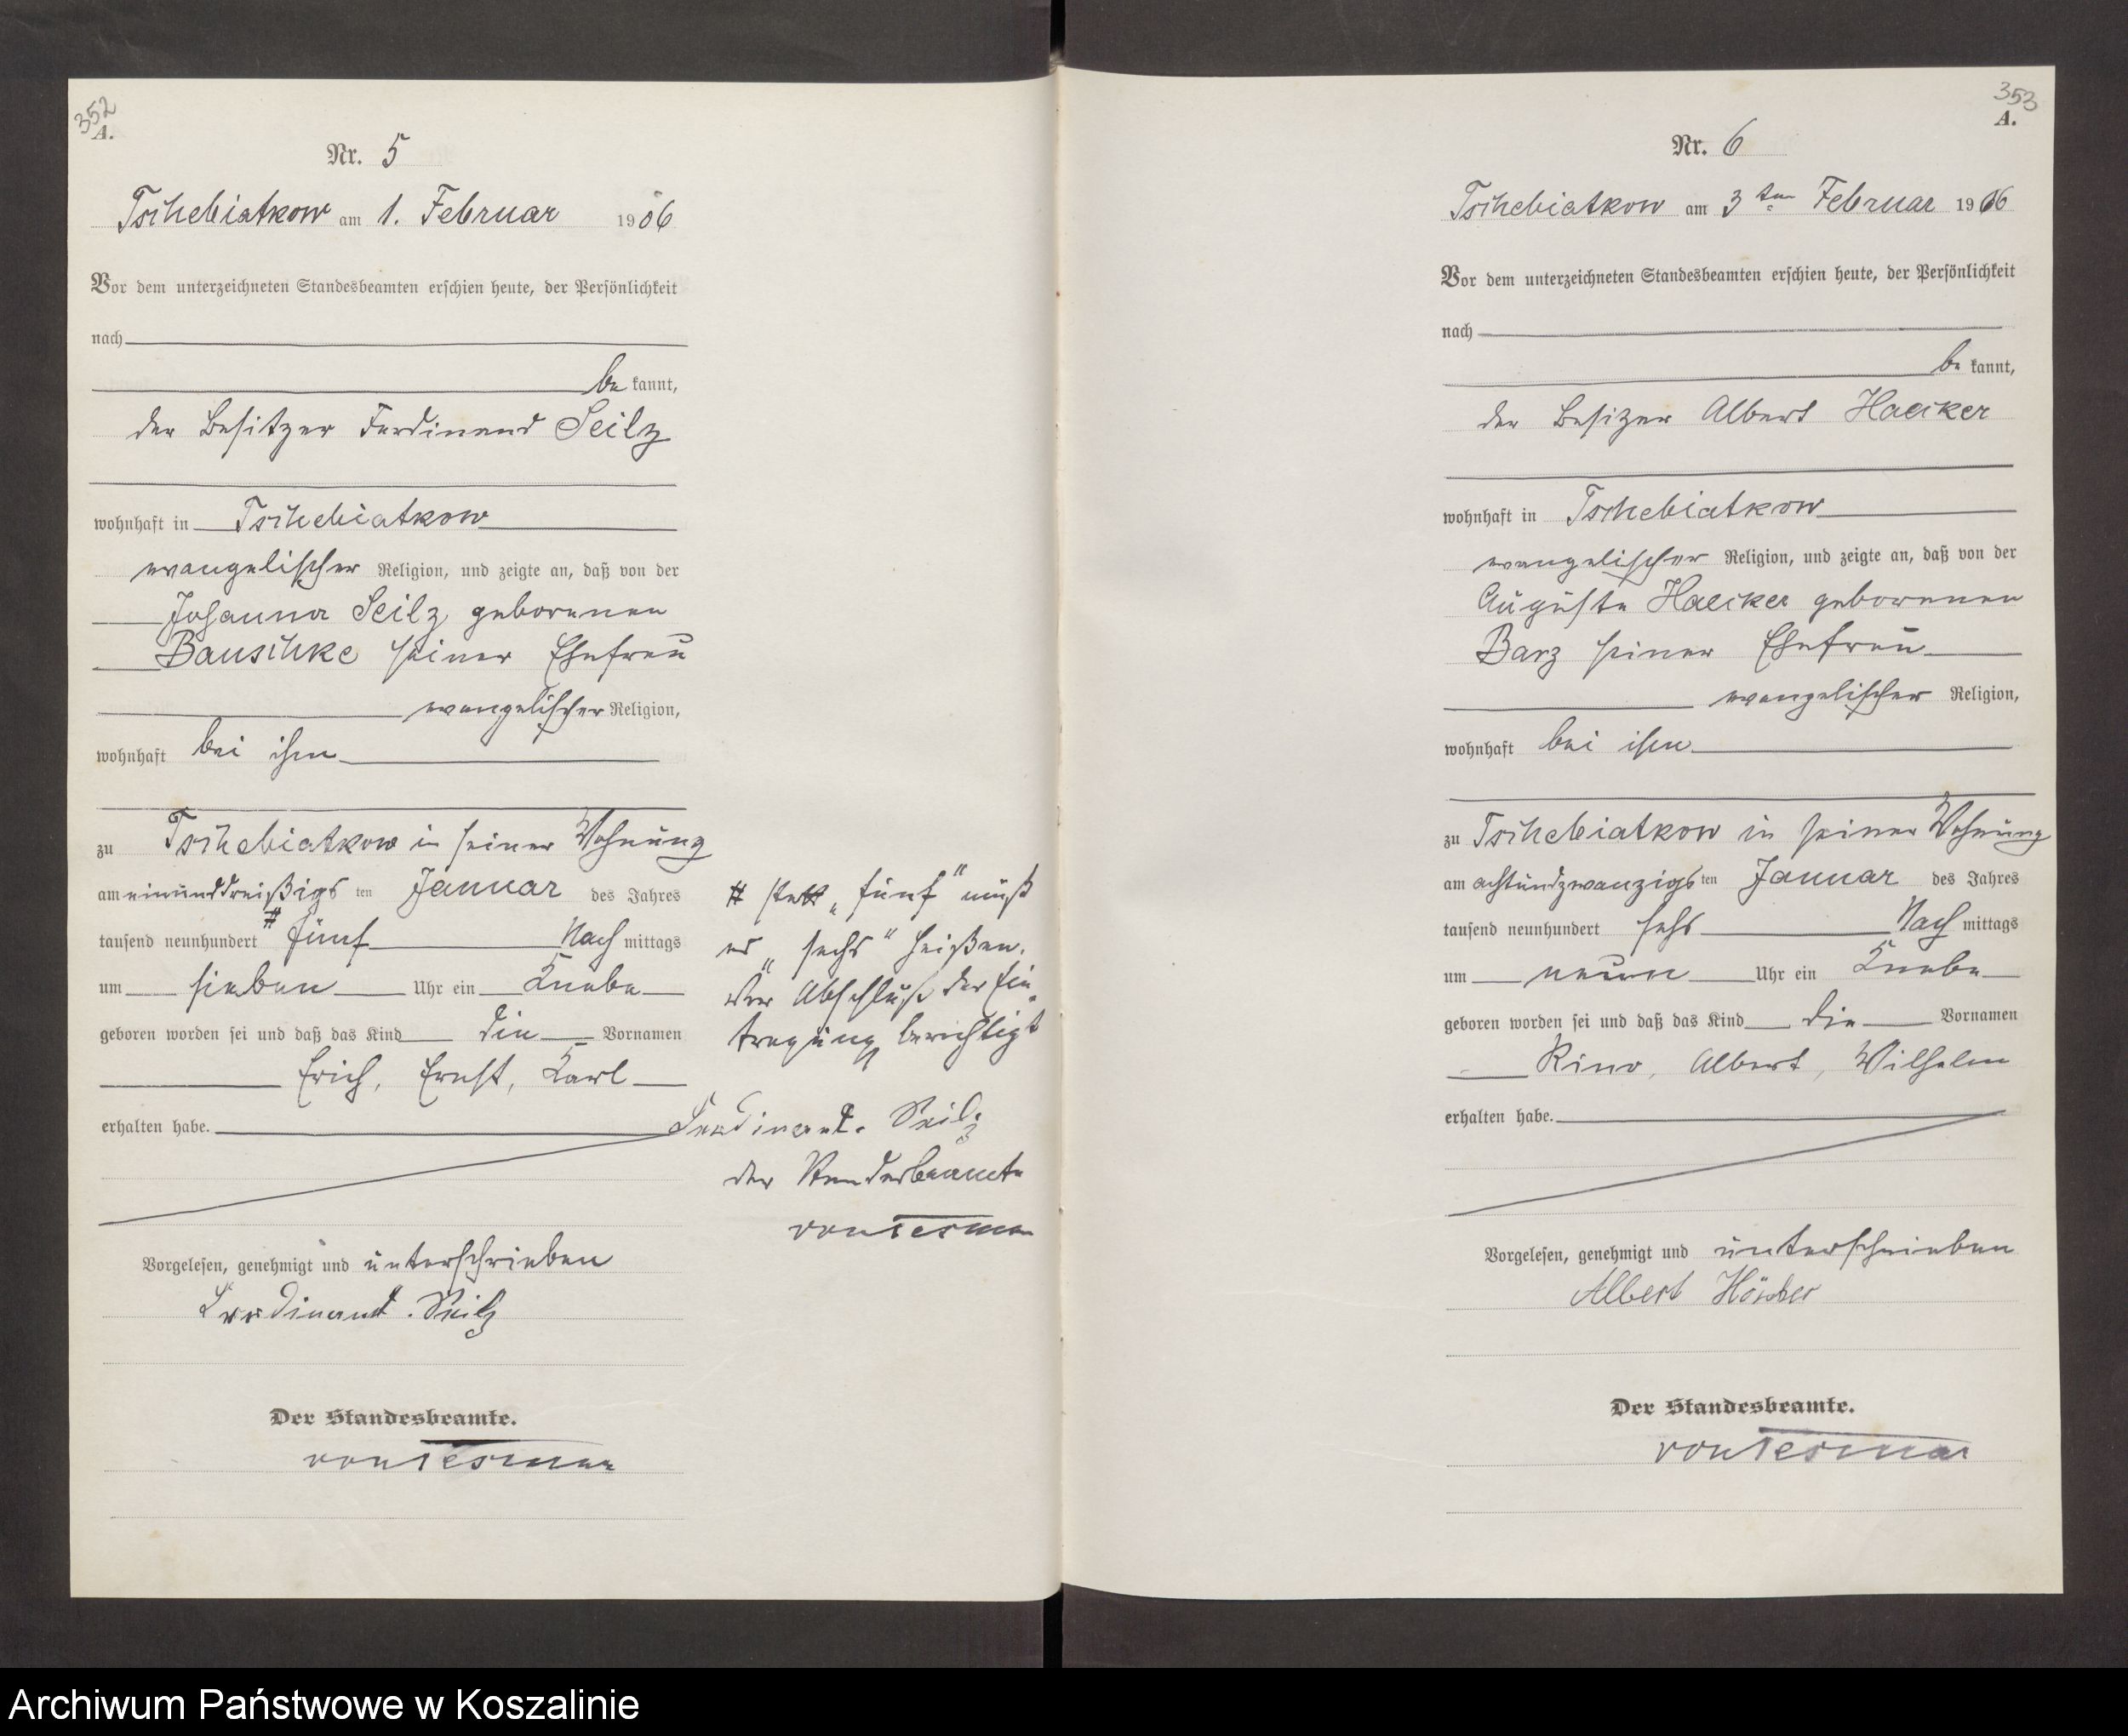 352
A.
Nr. 5
Tschebiatkow am 1. Februar 1906
Vor dem unterzeichneten Standesbeamten erschien heute, der Persönlichkeit
nach
be kannt,
der Besitzer Ferdinand Seilz
wohnhaft in Tschebiatkow
evangelischer Religion, und zeigte an, daß von der
Johanna Seilz geborenen
Bauschke seiner Ehefrau
evangelischer Religion,
wohnhaft bei ihm
zu Tschebiatkow in seiner Wohnung
am einunddreißigs ten Januar des Jahres
tausend neunhundert # fünf Nach mittags
um sieben Uhr ein Knabe
geboren worden sei und daß das Kind die Vornamen
Erich, Ernst, Karl
erhalten habe.
Vorgelesen, genehmigt und unterschrieben
Ferdinand. Seilz
Der Standesbeamte.
von Tesmar
# statt „fünf" muß
es „sechs" heißen.
Vor Abschluß der Ein-
tragung berichtigt
Ferdinand. Seilz
der Standesbeamte
von Tesmar
353
A.
Nr. 6
Tschebiatkow am 3ten Februar 1906
Vor dem unterzeichneten Standesbeamten erschien heute, der Persönlichkeit
nach
be kannt,
der Besizer Albert Haecker
wohnhaft in Tschebiatkow
evangelischer Religion, und zeigte an, daß von der
Auguste Haecker geborenen
Barz seiner Ehefrau
evangelischer Religion,
wohnhaft bei ihm
zu Tschebiatkow in seiner Wohnung
am achtundzwanzigs ten Januar des Jahres
tausend neunhundert sehs Nach mittags
um neun Uhr ein Knabe
geboren worden sei und daß das Kind die Vornamen
Rino, Albert, Wilhelm
erhalten habe.
Vorgelesen, genehmigt und unterschrieben
Albert Häcker
Der Standesbeamte.
von Tesmar
Archiwum Państwowe w Koszalinie